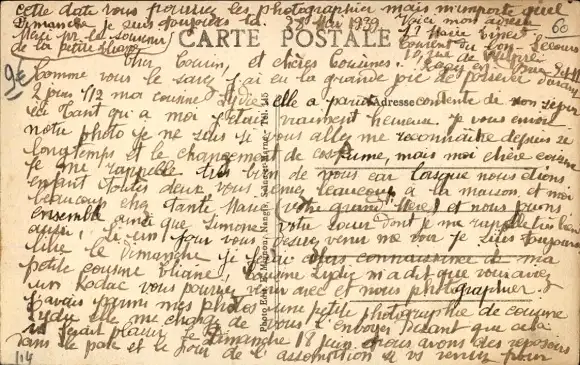 cette date vous pourrez les photographier mais n'importe quel
Dimanche je suis toujours là. 25 Mai 1939
Merci pr le souvenir
de la petite Eliane
Voici mon adresse
CARTE POSTALE
60
9€
Cher Cousin, et chères Cousines.
Comme vous le savez j'ai eu la grande joie de posséder durant
2 jours 1/2 ma cousine Lydie elle a parut contente de son séjour
Adresse
ici tant qu'à moi j'étais vraiment heureuse. Je vous envoie
notre photo je ne sais si vous allez me reconnaître depuis si
longtemps et le changement de costume, mais moi chère cousine
je me rappelle très bien de vous car lorsque nous étions
enfant toutes deux vous veniez beaucoup à la maison et moi
beaucoup chez tante Marie votre grand'Mère) et nous jouions
ensemble ainsi que Simone votre sœur dont je me rappelle très bien
aussi, si un jour vous désirez venir me voir je suis toujours
libre le Dimanche je ferai alors connaissance de ma
petite cousine Eliane, cousine Lydie m'a dit que vous aviez
un Kodac vous pourrez venir avec et nous photographier.
J'avais parmi mes photos une petite photographie de cousine
Lydie elle me charge de vous l'envoyer disant que cela
vs ferait plaisir le Dimanche 18 juin nous avons des reposoirs
dans le parc et le jour de l'assomption si vs venez pour
Photo Edit. Mignon, Nangis, Seine-et-Marne - Tél. 145
114